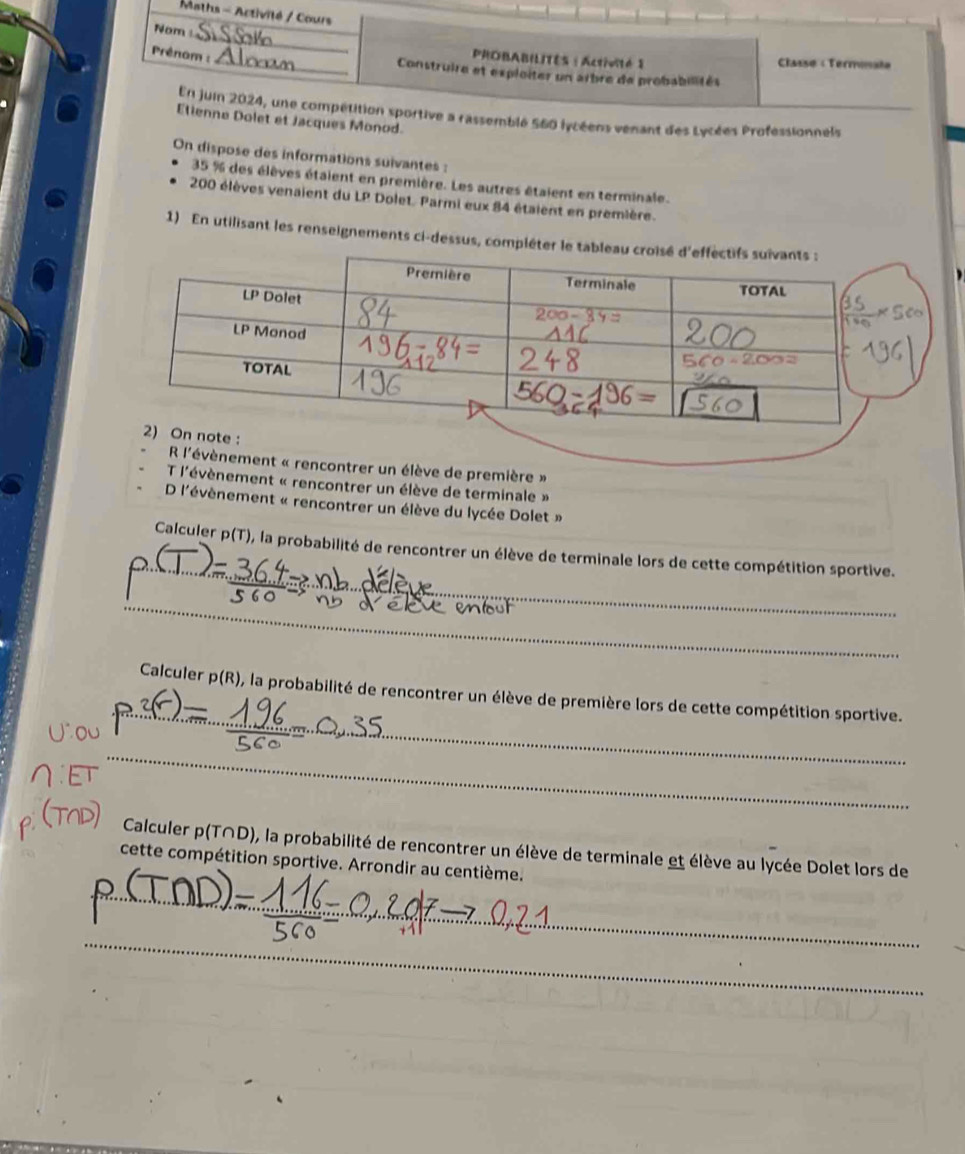 Maths – Activité / Cours
Nom : Sissoko
Prénom :
PROBABILITÉS : Activité 1
Construire et exploiter un arbre de probabilités
Classe : Terminale
En juin 2024, une compétition sportive a rassemblé 560 lycéens venant des Lycées Professionnels
Etienne Dolet et Jacques Monod.
On dispose des informations suivantes :
• 35 % des élèves étaient en première. Les autres étaient en terminale.
• 200 élèves venaient du LP Dolet. Parmi eux 84 étaient en première.
1) En utilisant les renseignements ci-dessus, compléter le tableau croisé d'effectifs suivants :
Première Terminale TOTAL
LP Dolet 84 200 - 84 = 116 200
LP Monod 196 - 84 = 112 248 560 - 200 = 360
TOTAL 196 560 - 196 = 364 560
35/100 × 560
= 196
2) On note :
- R l'évènement « rencontrer un élève de première »
- T l'évènement « rencontrer un élève de terminale »
- D l'évènement « rencontrer un élève du lycée Dolet »
Calculer p(T), la probabilité de rencontrer un élève de terminale lors de cette compétition sportive.
p(T) = 364/560 → nb d'élève
→ nb d'élève entout
Calculer p(R), la probabilité de rencontrer un élève de première lors de cette compétition sportive.
= 196/560 = 0,35
U : OU
∩ : ET
p. (T∩D)
Calculer p(T∩D), la probabilité de rencontrer un élève de terminale et élève au lycée Dolet lors de
cette compétition sportive. Arrondir au centième.
p.(T∩D) = 116/560 = 0,207 → 0,21
+1